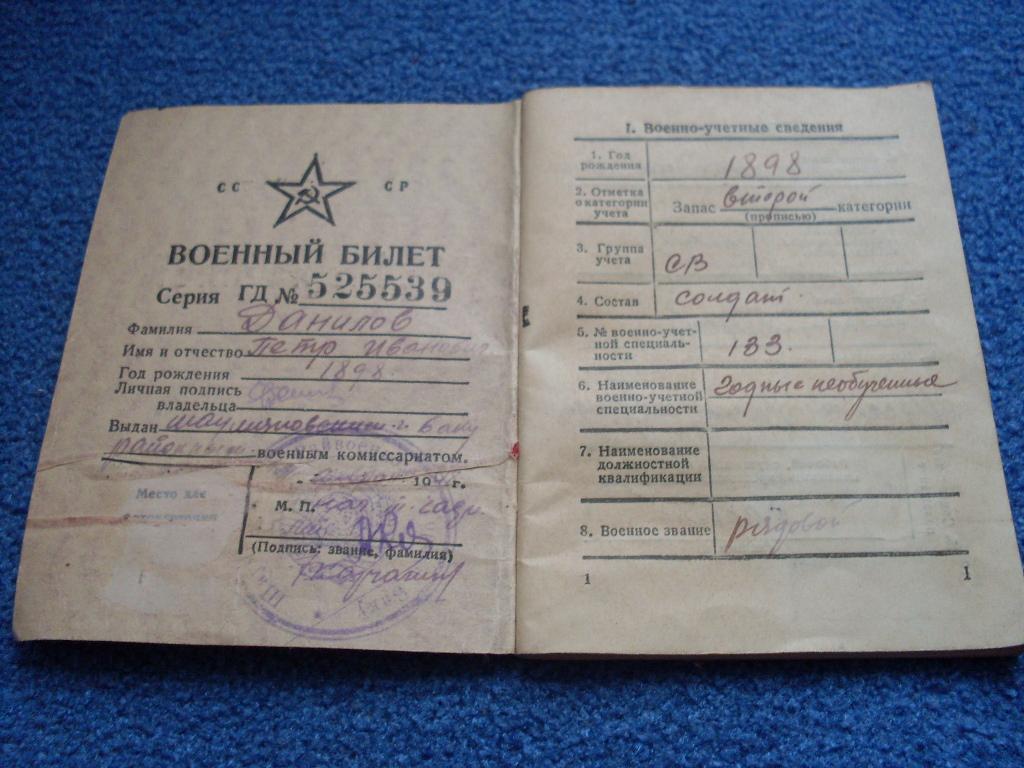 СС СР
ВОЕННЫЙ БИЛЕТ
Серия ГД № 525539
Фамилия Данилов
Имя и отчество Петр Иванович
Год рождения 1898
Личная подпись
владельца
Выдан Шаумяновским г. Баку
районным военным комиссариатом.
194 г.
Место для
М. П.
(Подпись: звание, фамилия)
I. Военно-учетные сведения
1. Год
рождения 1898
2. Отметка
о категории
учета Запас второй категории
(прописью)
3. Группа
учета СВ
4. Состав солдат.
5. № военно-учет-
ной специаль-
ности 133.
6. Наименование
военно-учетной
специальности годные необученные
7. Наименование
должностной
квалификации
8. Военное звание рядовой
1
1